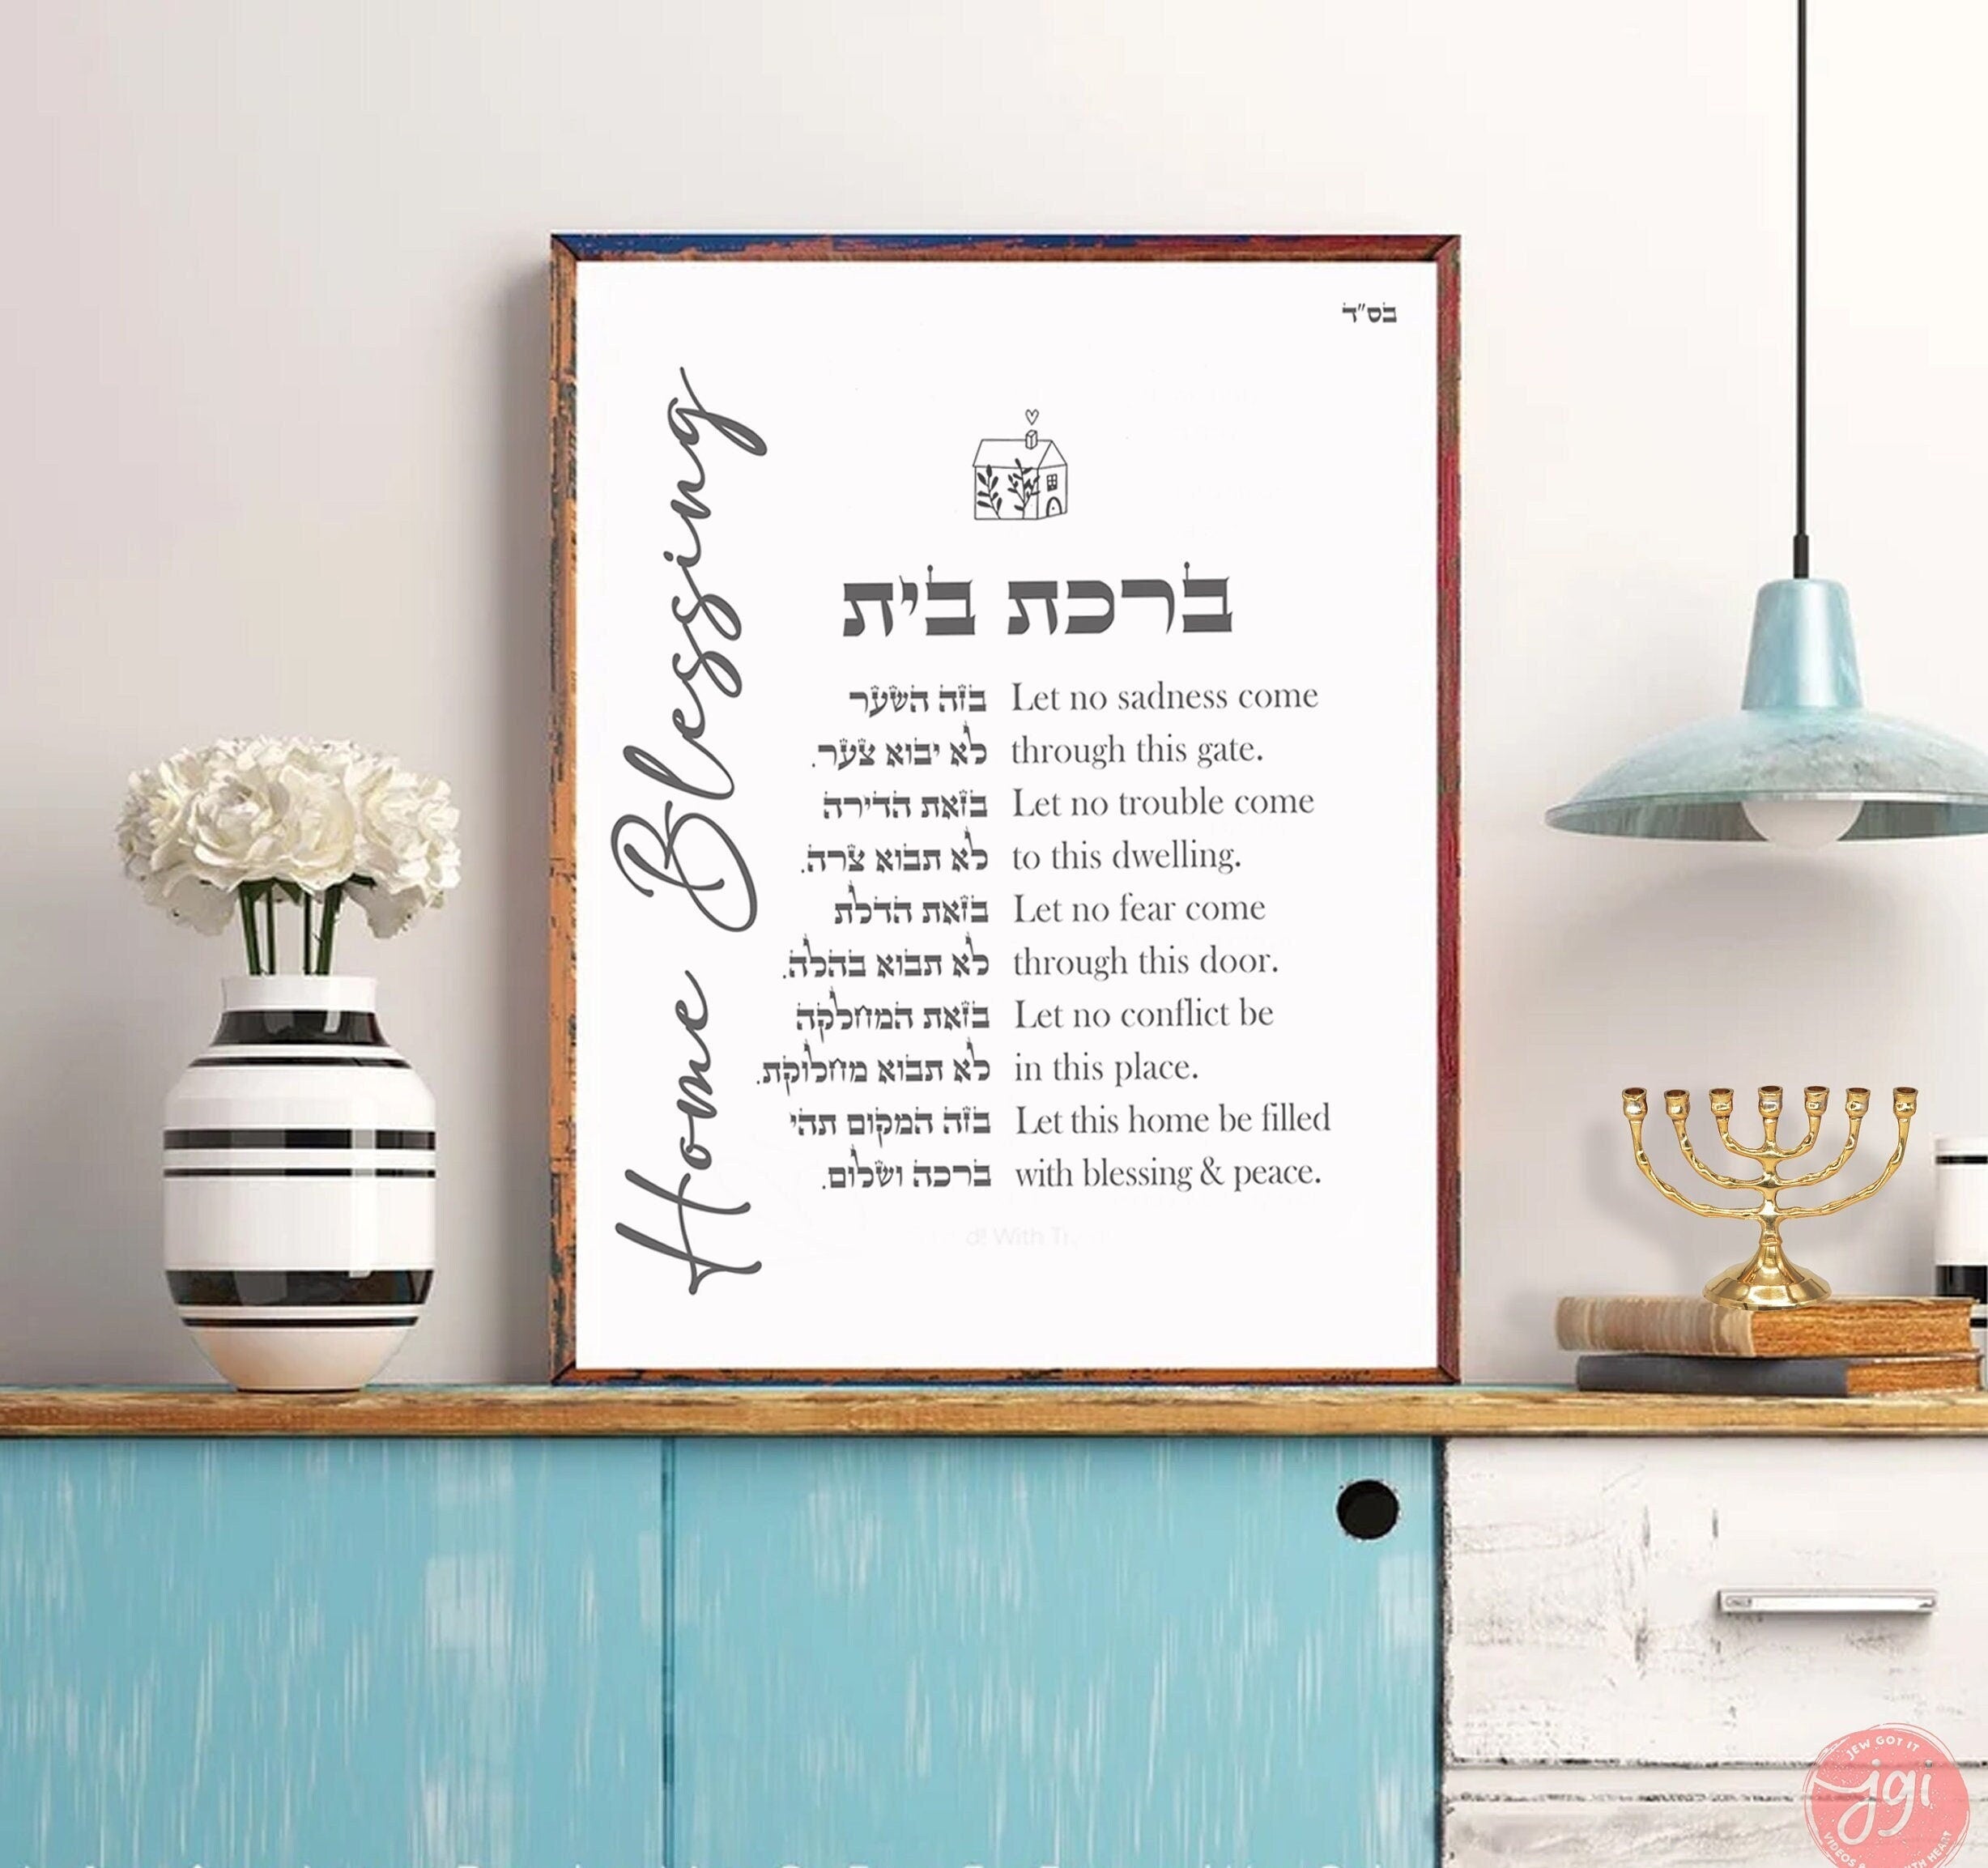 בס"ד
Home Blessing
ברכת בית
בזה השער Let no sadness come
לא יבוא צער. through this gate.
בזאת הדירה Let no trouble come
לא תבוא צרה. to this dwelling.
בזאת הדלת Let no fear come
לא תבוא בהלה. through this door.
בזאת המחלקה Let no conflict be
לא תבוא מחלוקת. in this place.
בזה המקום תהי Let this home be filled
ברכה ושלום. with blessing & peace.
JEW GOT IT
jgi